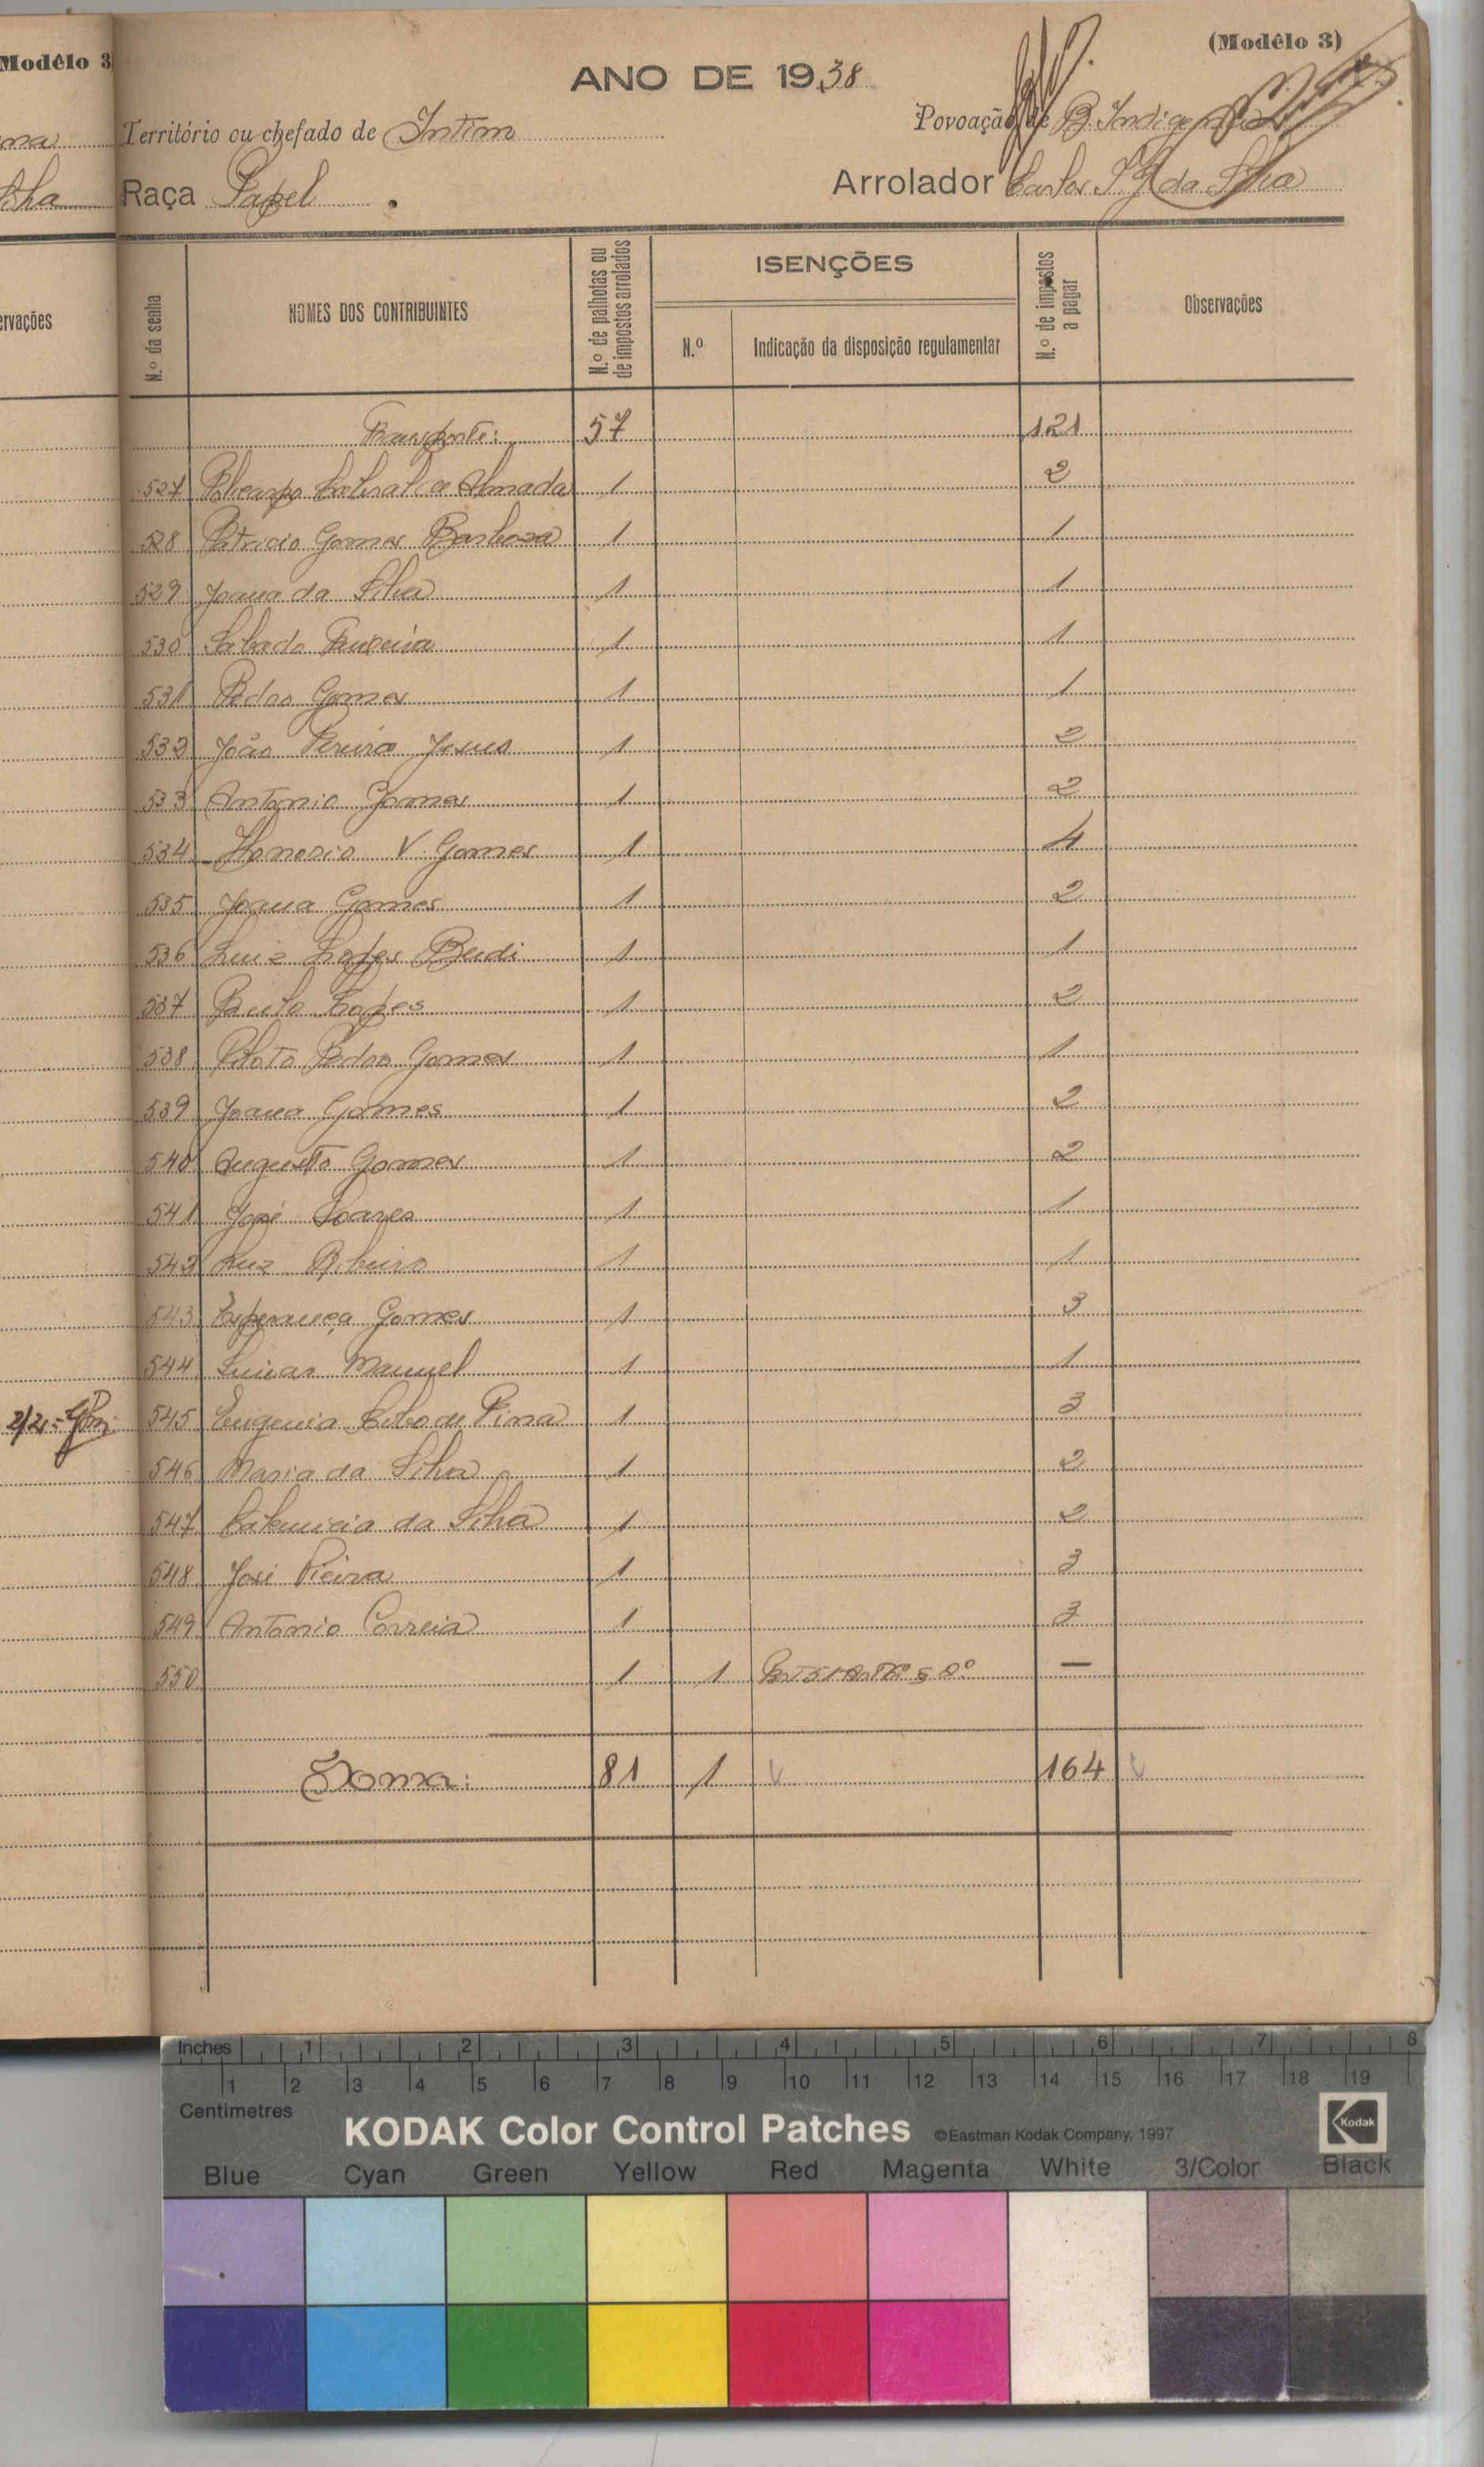 Modêlo 3
(Modêlo 3)
ANO DE 1938
Território ou chefado de Intim
Povoação de B. Indigena
Raça Papel
Arrolador Carlos da Silva
ervações
N.º da senha
NOMES DOS CONTRIBUINTES
N.º de palhotas ou de impostos arrolados
ISENÇÕES
N.º
Indicação da disposição regulamentar
N.º de impostos a pagar
Observações
Transporte: 57 121
527 Policarpo Cabral de Almada 1 2
528 Patricio Gomes Barbosa 1 1
529 Joana da Silva 1 1
530 Sabado 1 1
531 Pedro Gomes 1 1
532 João Pereira Jesus 1 2
533 Antonio Gomes 1 2
534 Honorio V. Gomes 1 4
535 Joana Gomes 1 2
536 Luiz Lopes 1 1
537 Paulo Lopes 1 2
538 Pedro Gomes 1 1
539 Joana Gomes 1 2
540 Augusto Gomes 1 2
541 José Soares 1 1
542 Luz Ribeiro 1 1
543 Esperança Gomes 1 3
544 Manuel 1 1
545 Eugenia Lobo de Pina 1 3
546 Maria da Silva 1 2
547 da Silva 1 2
548 José Vieira 1 3
549 Antonio Correia 1 3
550 1 1 —
Soma: 81 1 164
Inches 1 2 3 4 5 6 7 8
1 2 3 4 5 6 7 8 9 10 11 12 13 14 15 16 17 18 19
Centimetres
KODAK Color Control Patches ©Eastman Kodak Company, 1997 Kodak
Blue Cyan Green Yellow Red Magenta White 3/Color Black